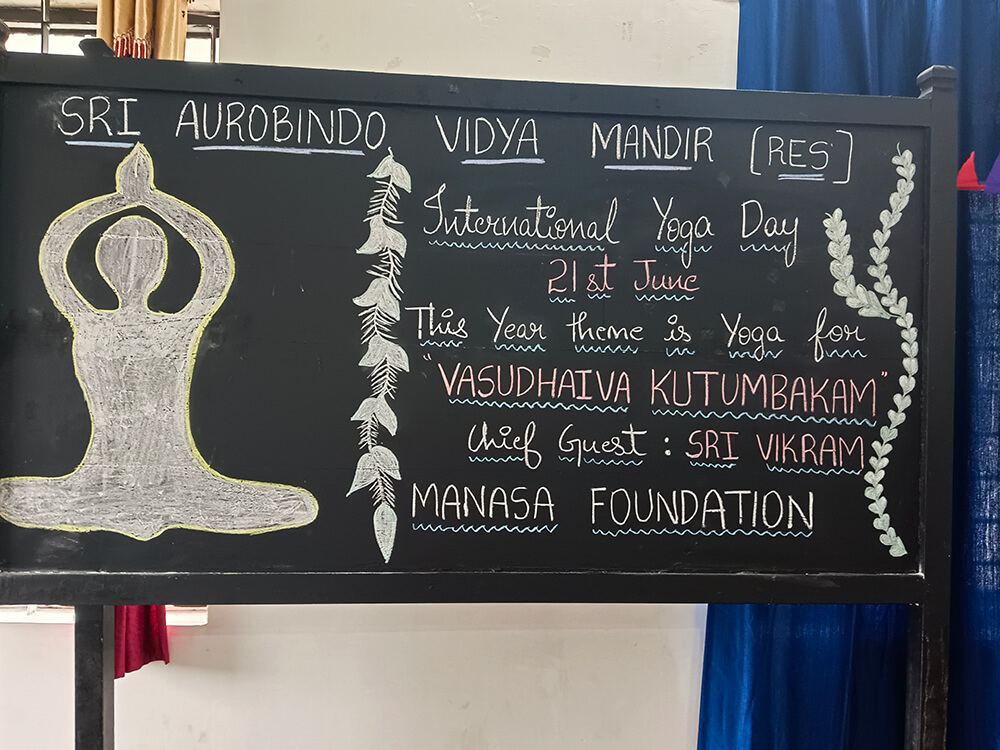 SRI AUROBINDO VIDYA MANDIR [RES]
International Yoga Day
21st June
This Year theme is Yoga for
"VASUDHAIVA KUTUMBAKAM"
Chief Guest : SRI VIKRAM
MANASA FOUNDATION